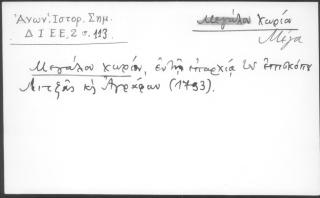 Ἀνων. Ἱστορ. Σημ.
Δ Ι Ε Ε, 2 σ. 193
Μεγάλου Χωρία
Μέγα
Μεγάλου χωρίου, ἐν τῇ ἐπαρχίᾳ τοῦ ἐπισκόπου
Λιτζᾶς κὴ Ἀγράφων (1793).